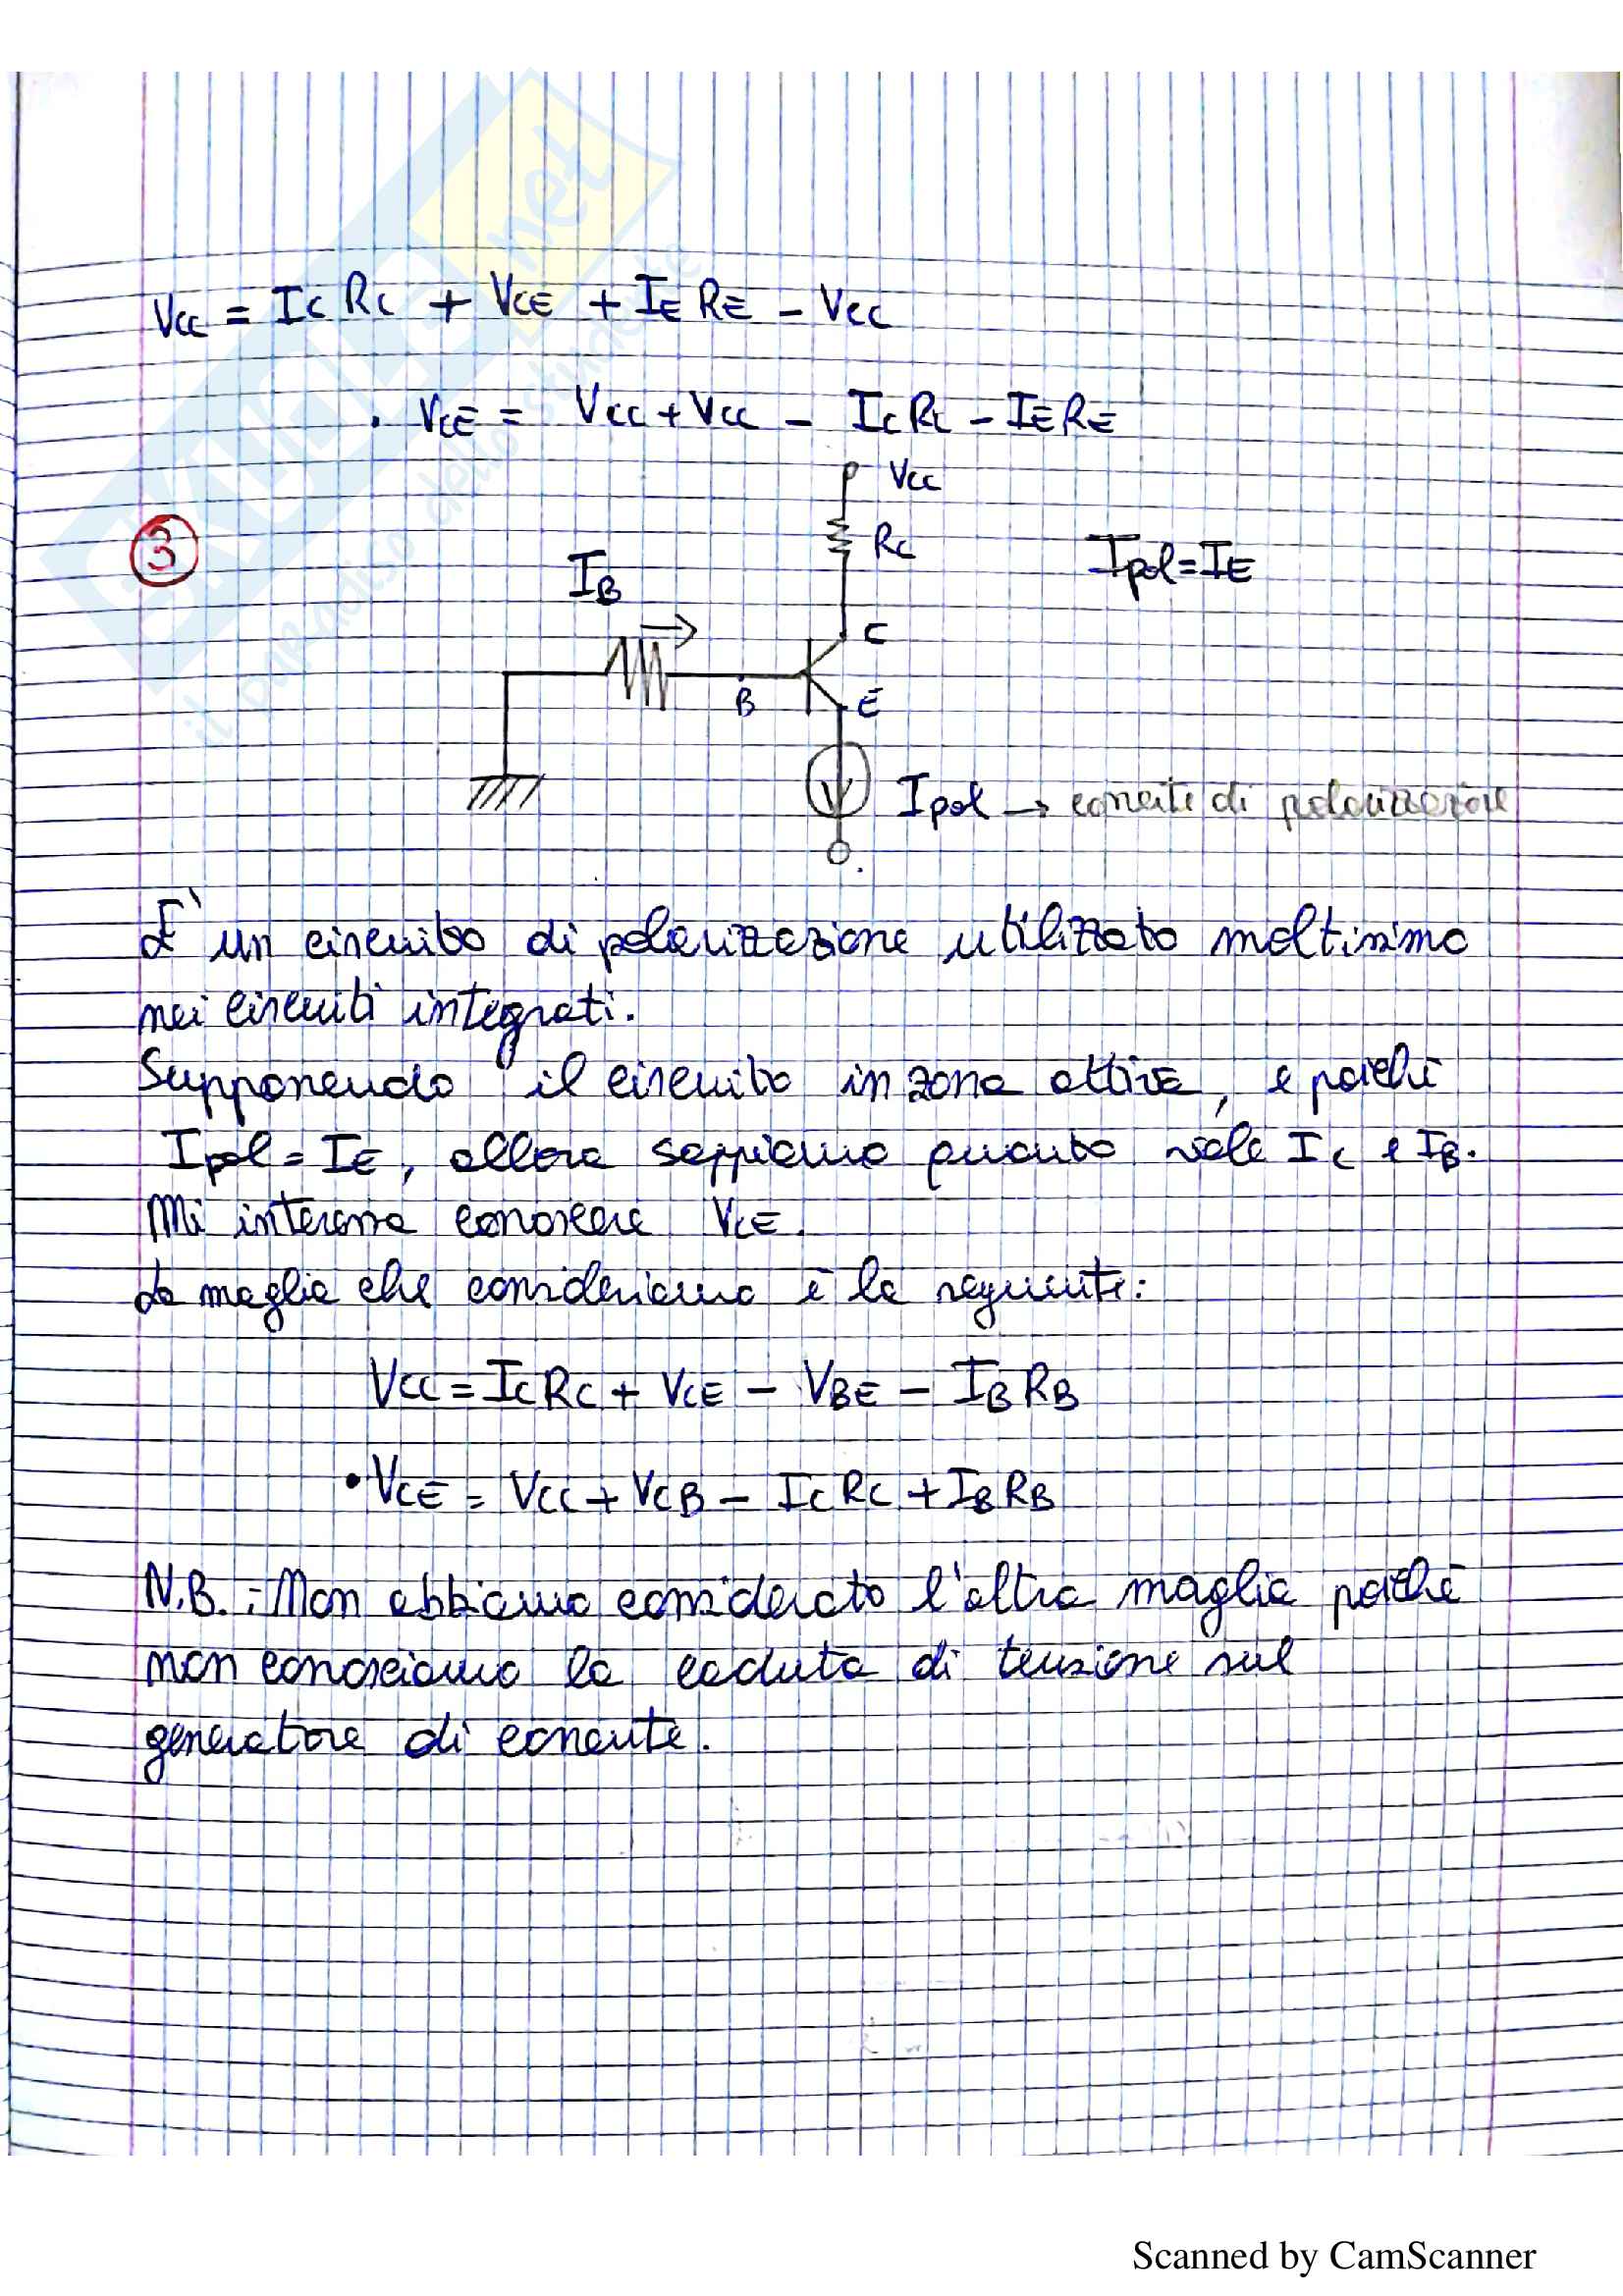 Vcc = Ic Rc + VCE + IE RE - Vcc
• VCE = Vcc + Vcc - Ic Rc - IE RE
Vcc
3
Rc
Ipol = IE
IB
C
B
E
Ipol → corrente di polarizzazione
E' un circuito di polarizzazione utilizzato moltissimo
nei circuiti integrati.
Supponendo il circuito in zona attiva, e poichè
Ipol = IE, allora sappiamo quanto vale Ic e IB.
Mi interessa conoscere VCE.
La maglia che consideriamo è la seguente:
Vcc = Ic Rc + VCE - VBE - IB RB
• VCE = Vcc + VCB - Ic Rc + IB RB
N.B.: Non abbiamo considerato l'altra maglia poichè
non conosciamo la caduta di tensione sul
generatore di corrente.
SKUOLA.net
il paradiso dello studente
Scanned by CamScanner